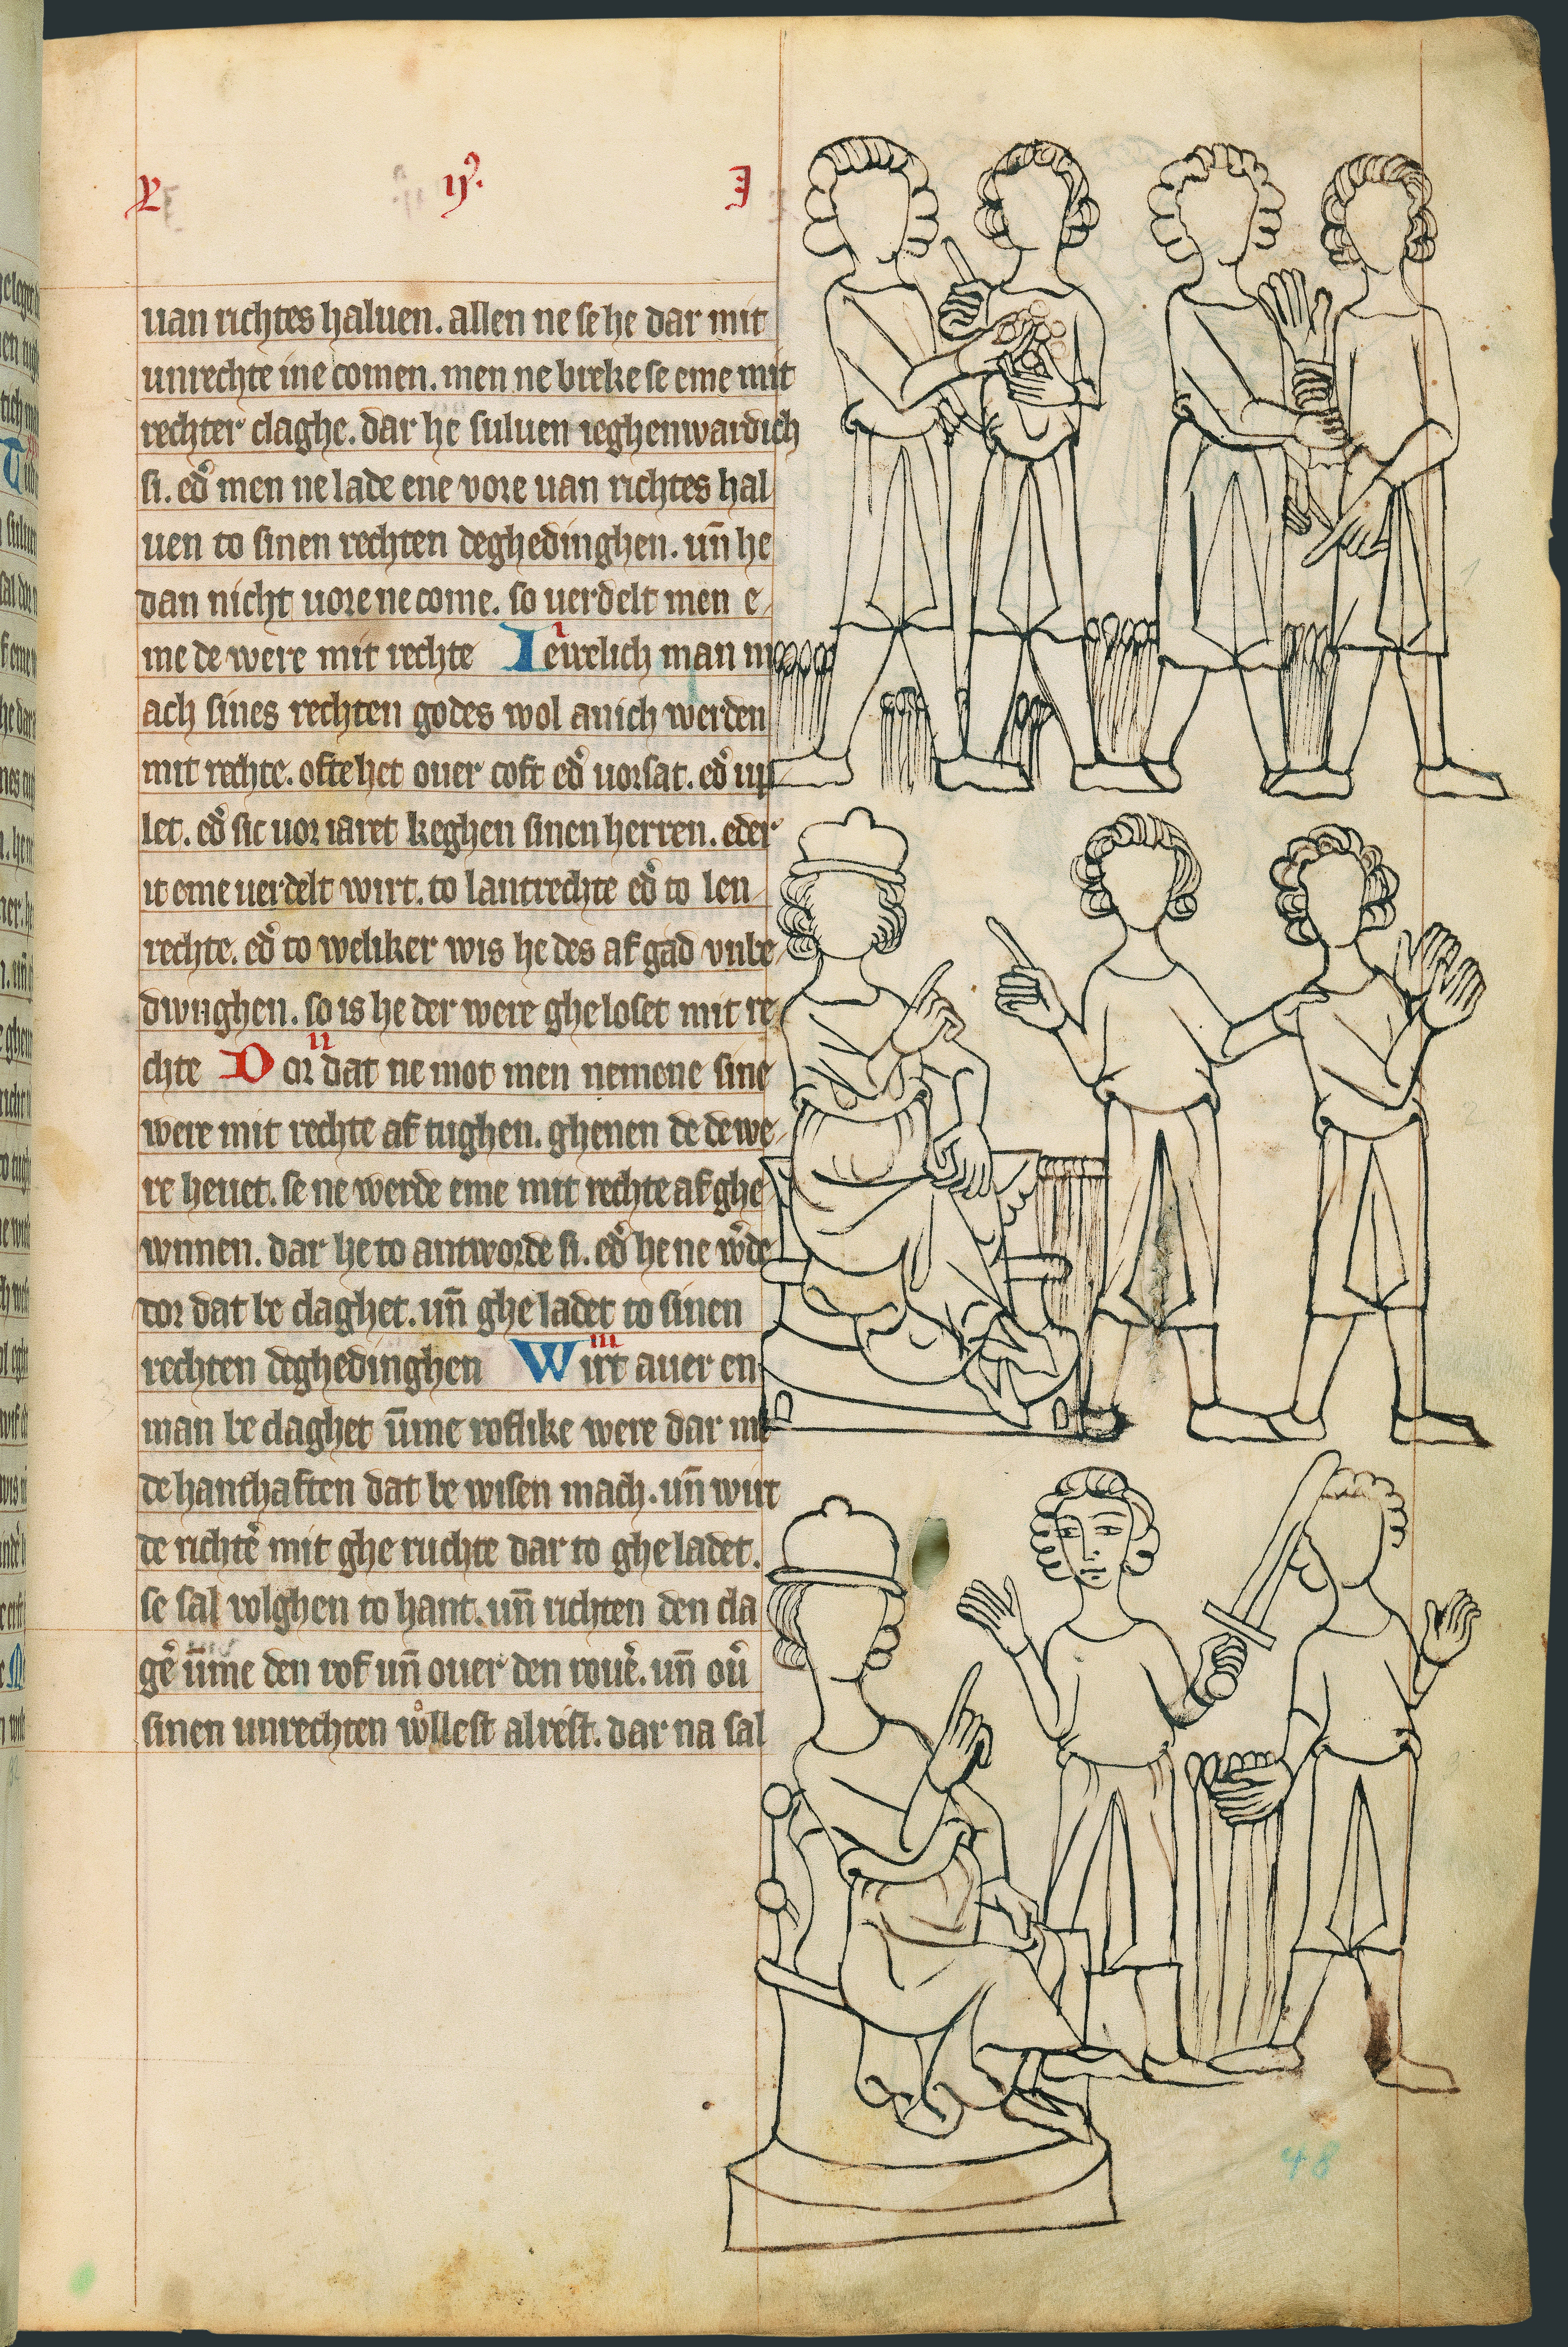 ꝶ ij⁹. I
uan richtes haluen. allen ne se he dar mit
unrechte ine comen. men ne breke se eme mit
rechter claghe. dar he suluen ieghenwardich
si. ed᷑ men ne lade ene vore uan richtes hal
uen to sinen rechten deghedinghen. un̄ he
dan nicht uore ne come. so uerdelt men e
me de were mit rechte I Iewelich man m
ach sines rechten godes wol anich werden
mit rechte. ofte het ouer coft ed᷑ uorsat. ed᷑ up
let. ed᷑ sic uor iaret keghen sinen herren. eder
it eme uerdelt wirt. to lantrechte ed᷑ to len
rechte. ed᷑ to weliker wis he des af gad vnbe
dwnghen. so is he der were ghe loset mit re
chte II Dor dat ne mot men nemene sine
were mit rechte af tughen. ghenen de de we
re heuet. se ne werde eme mit rechte af ghe
wnnen. dar he to antworde si. ed᷑ he ne w᷑de
dor dat be claghet. un̄ ghe ladet to sinen
rechten deghedinghen III Wirt auer en
man be claghet ūme roflike were dar me
de hanthaften dat be wisen mach. un̄ wirt
de richte᷑ mit ghe ruchte dar to ghe ladet.
se sal volghen to hant. un̄ richten den cla
ge᷑ ūme den rof un̄ ouer den roue᷑. un̄ ou᷑
sinen unrechten wͦllest alrest. dar na sal
48